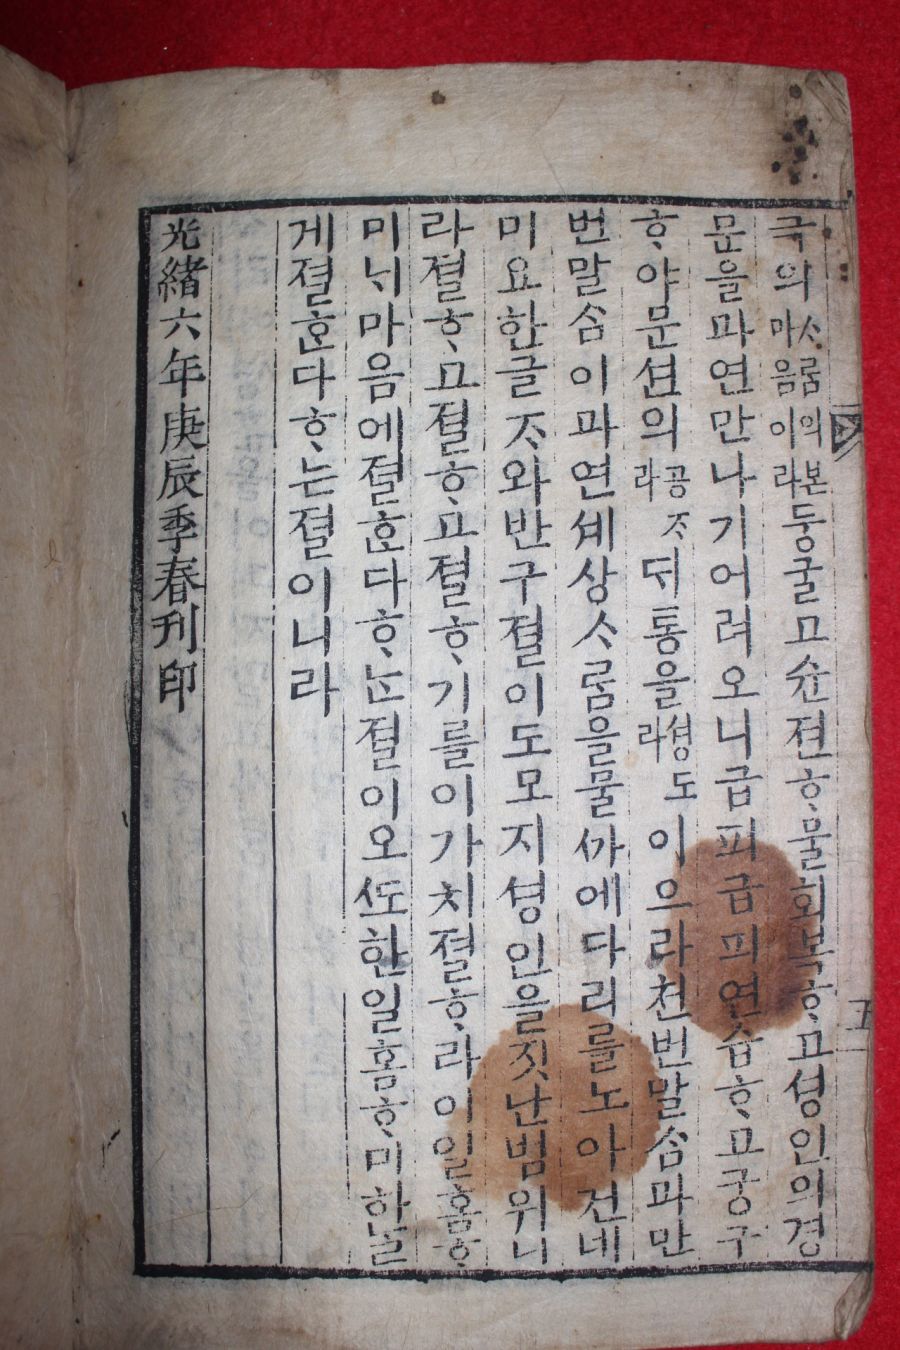 극의ᄉᆞ룸의본마음이라둥굴고슌젼ᄒᆞ물회복ᄒᆞ고셩인의경
문을파연만나기어려오니급피급피연습ᄒᆞ고궁구
ᄒᆞ야문션의공ᄌᆞ라통을셩도라이으라천번말ᄉᆞᆷ과만
번말ᄉᆞᆷ이파연셰상ᄉᆞ룸을물ᄭᅡ에다리를노아건네
미요한글ᄌᆞ와반구졀이도모지셩인을짓난범위니
라졀ᄒᆞ고졀ᄒᆞ고졀ᄒᆞ기를이가치졀ᄒᆞ라이일홈ᄒᆞ
미ᄂᆡ마음에졀ᄒᆞᆫ다ᄒᆞᄂᆞᆫ졀이오ᄯᅩ한일홈ᄒᆞ미하ᄂᆞᆯ
게졀ᄒᆞᆫ다ᄒᆞ는졀이니라
光緖六年庚辰季春刊印